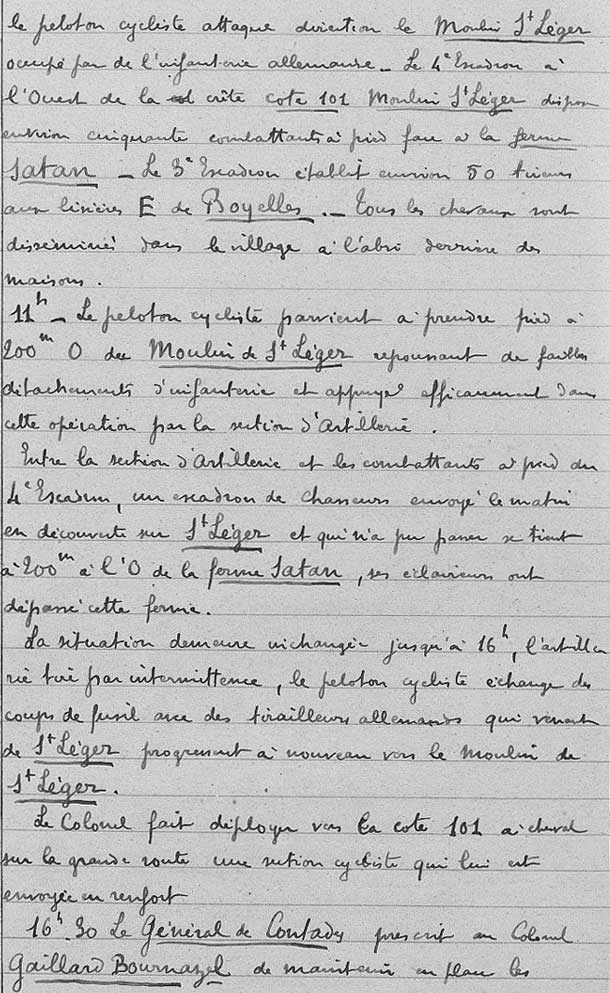 le peloton cycliste attaque direction le Moulin St Léger
occupé par de l'infanterie allemande _ Le 4e Escadron à
l'Ouest de la crête cote 101 Moulin St Léger dispose
environ cinquante combattants à pied face à la ferme
Satan _ Le 3e Escadron établit environ 50 tireurs
aux lisières E de Boyelles._ Tous les chevaux sont
disséminés dans le village à l'abri derrière des
maisons.
11h _ Le peloton cycliste parvient à prendre pied à
200m O du Moulin de St Léger repoussant de faibles
détachements d'infanterie et appuyé efficacement dans
cette opération par la section d'Artillerie.
Entre la section d'Artillerie et les combattants à pied du
4e Escadron, un escadron de Chasseurs envoyé le matin
en découverte sur St Léger et qui n'a pu passer se tient
à 200m à l'O de la ferme Satan, ses éclaireurs ont
dépassé cette ferme.
La situation demeure inchangée jusqu'à 16h, l'artille
rie tire par intermittence, le peloton cycliste échange des
coups de fusil avec des tirailleurs allemands qui venant
de St Léger progressent à nouveau vers le Moulin de
St Léger.
Le Colonel fait déployer vers la cote 101 à cheval
sur la grande route une section cycliste qui lui est
envoyée en renfort
16h 30 Le Général de Contades prescrit au Colonel
Gaillard Bournazel de maintenir en place les